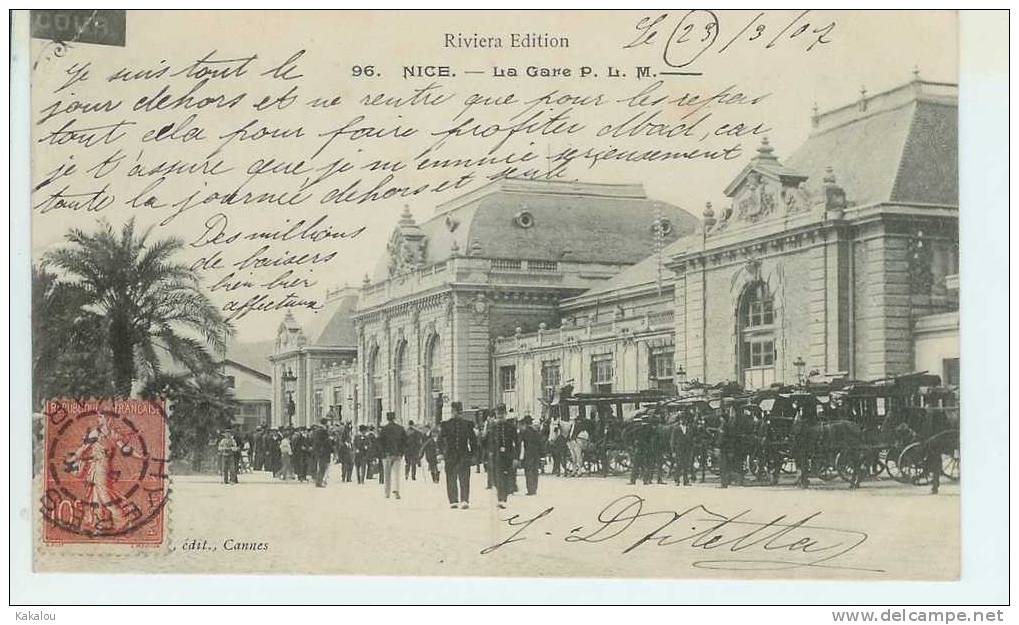 Riviera Edition
Le 23/3/07
96. NICE. — La Gare P. L. M. —
Je suis tout le
jour dehors et ne rentre que pour les repas
tout cela pour faire profiter car
je t'assure que je m'ennuie serieusement
toute la journée dehors et seule
Des millions
de baisers
bien
affectueux
REPUBLIQUE FRANÇAISE
HYERES
10
, édit., Cannes
Kakalou
http://www.delcampe.net